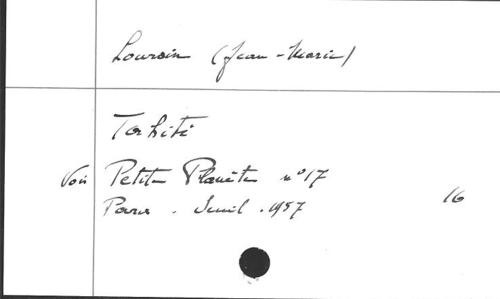 Loursin (Jean-Marie)
Tahiti
Voir Petite Planète n° 17
Paris. Seuil. 1957
16